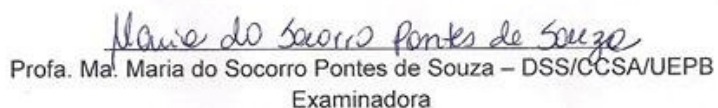 Maria do Socorro Pontes de Souza
Profa. Ma. Maria do Socorro Pontes de Souza – DSS/CCSA/UEPB
Examinadora